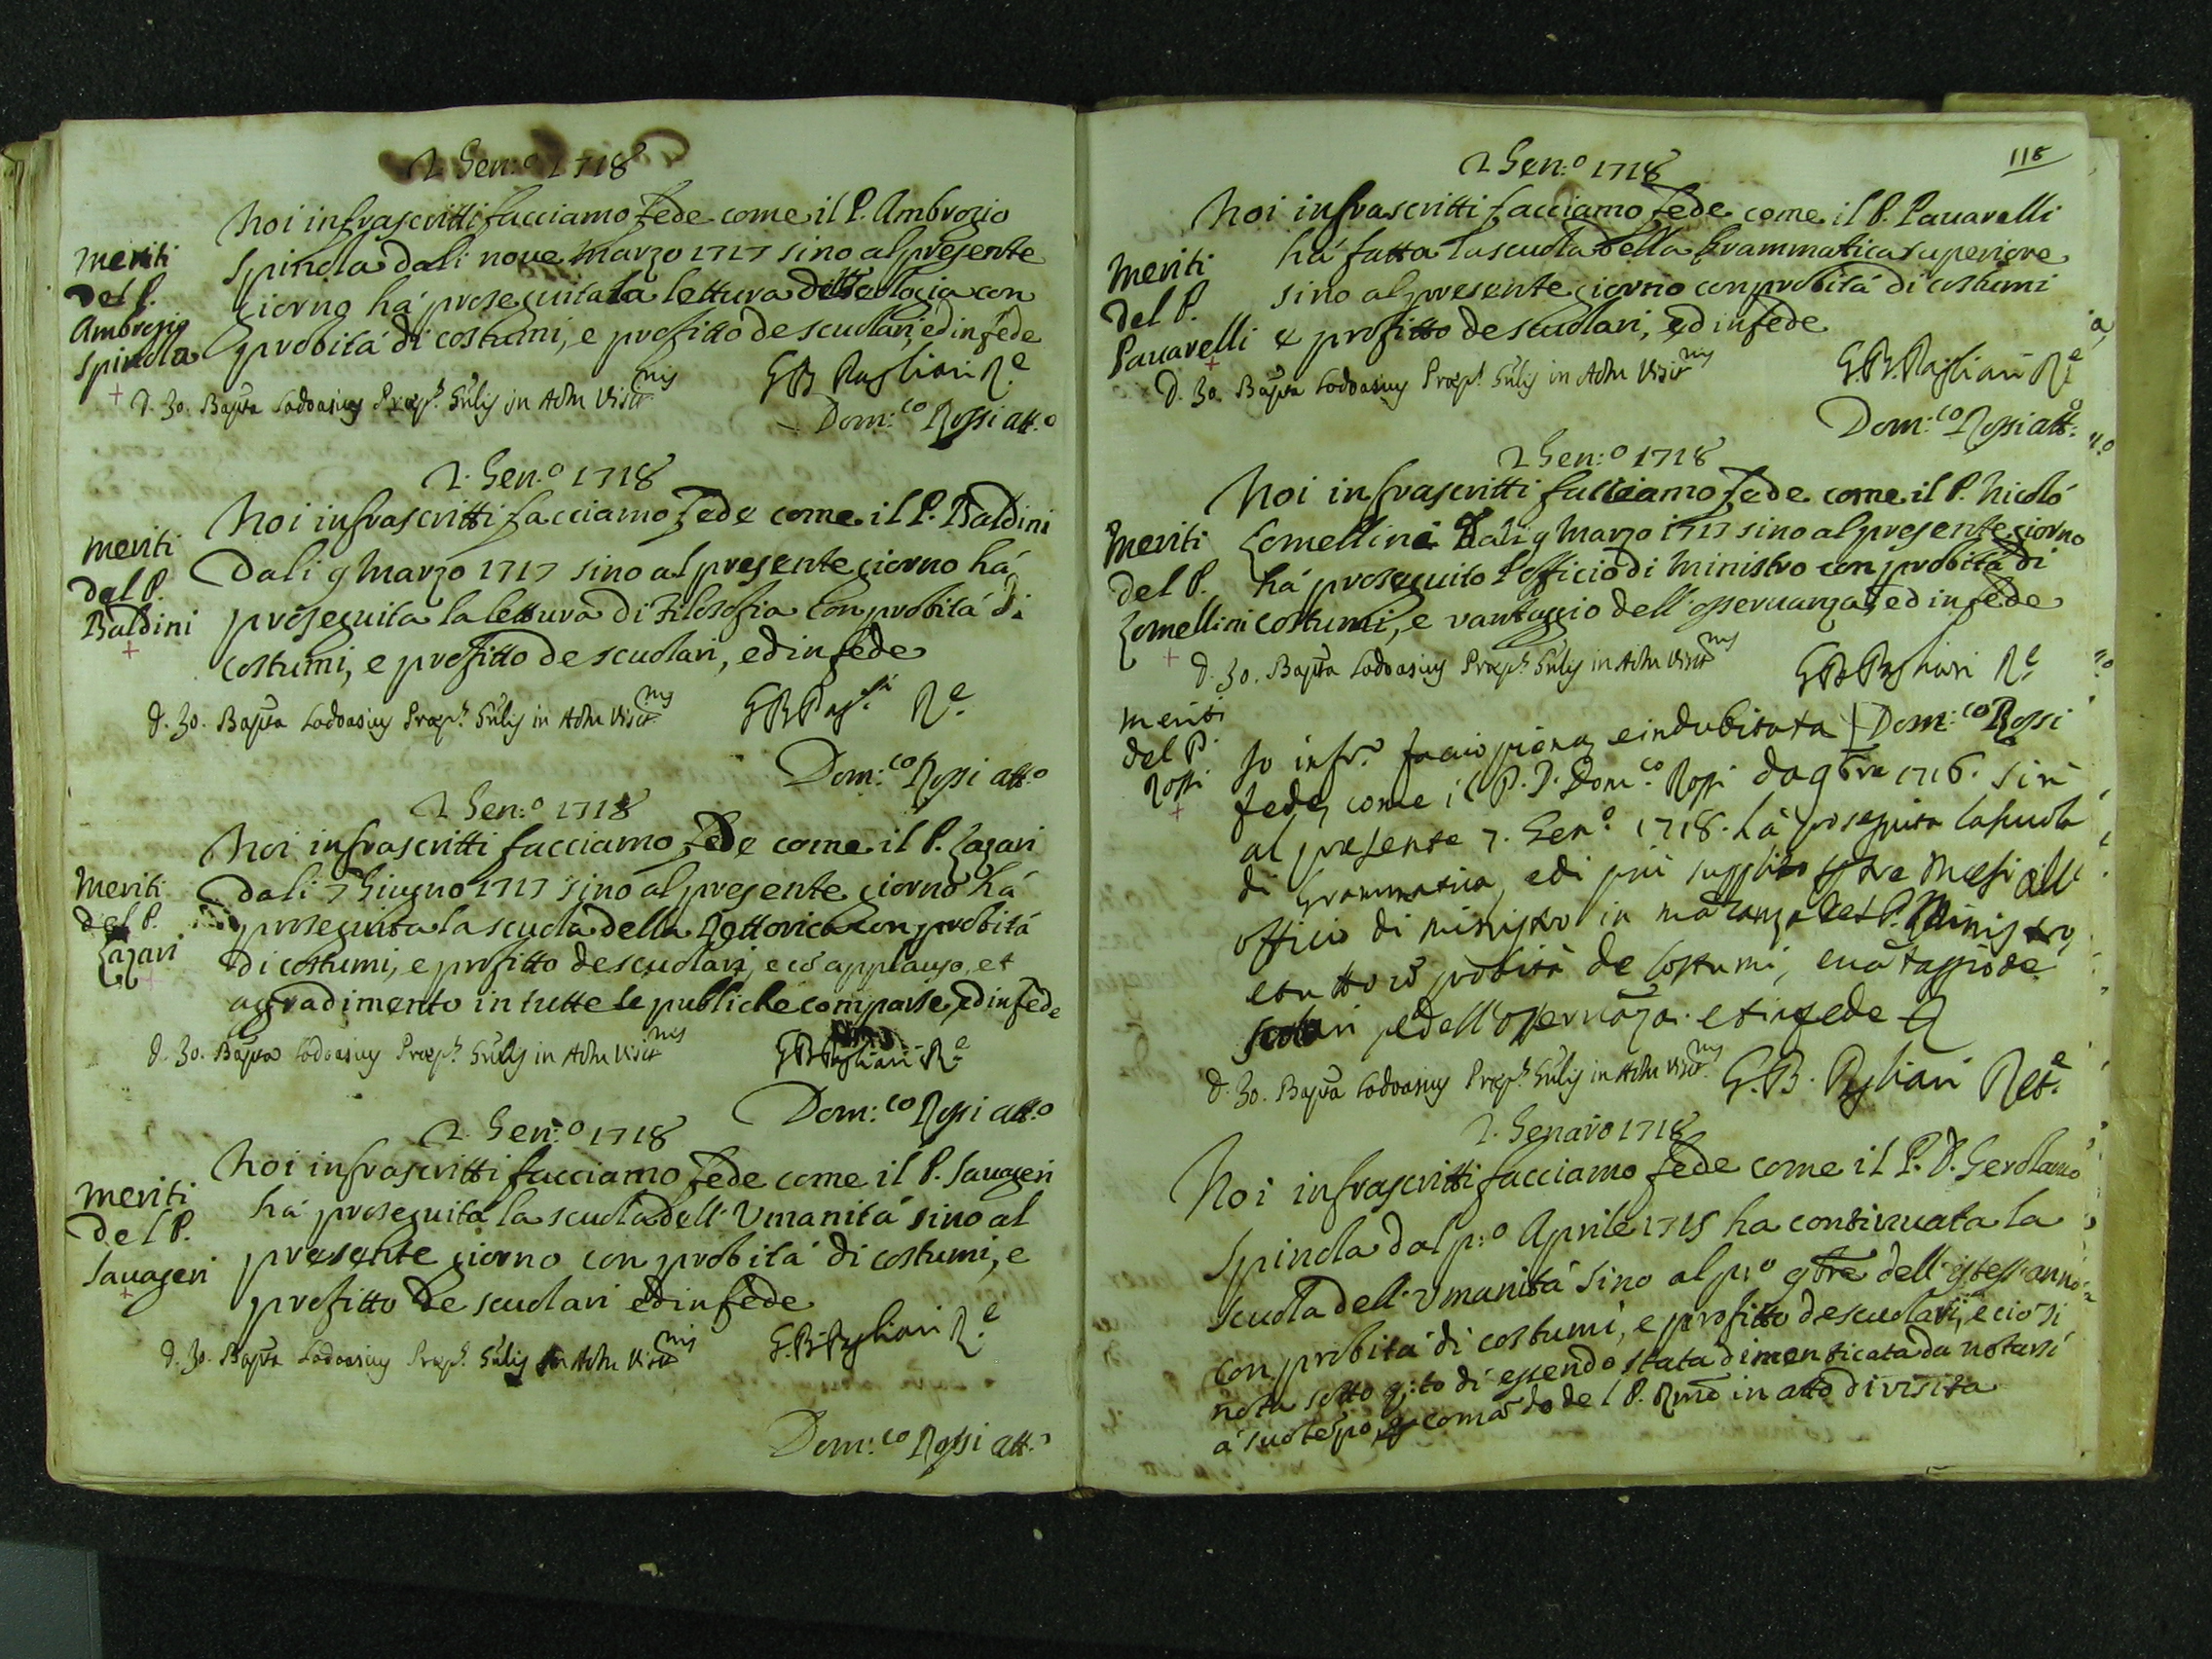 2 Gen:o 1718
Noi infrascritti facciamo fede come il P. Ambrogio
Spinola dali nove Marzo 1717 sino al presente
giorno há proseguita la lettura di Teologia con
probitá di costumi, e profitto de scuolari, ed in fede
Meriti
del P.
Ambrogio
Spinola
+
D. Jo. Bapta Lodoasius Præp. Gñlis in Actu Visitnis
GB Pagliari Re
Dom:co Rossi att.o
2. Gen.o 1718
Noi infrascritti facciamo fede come il P. Baldini
Dali 9 Marzo 1717 sino al presente giorno há
proseguita la lettura di Filosofia con probitá di
costumi, e profitto de scuolari, ed in fede
Meriti
del P.
Baldini
+
D. Jo. Bapta Lodoasius Præp. Gñlis in Actu Visitnis
GB Pag.ri Re
Dom:co Rossi att.o
2 Gen:o 1718
Noi infrascritti facciamo fede come il P. Lagari
dali 7 Giugno 1717 sino al presente giorno há
proseguita la scuola della Rettorica con probitá
di costumi, e profitto de scuolari, e cõ applauso, et
agradimento in tutte le publiche comparse, ed in fede
Meriti
del P.
Lagari
+
D. Jo. Bapta Lodoasius Præp. Gñlis in Actu Visitnis
GB Pagliari Re
Dom:co Rossi att.o
2. Gen:o 1718
Noi infrascritti facciamo fede come il P. Savageri
há proseguita la scuola dell' Umanitá sino al
presente giorno con probitá di costumi, e
profitto de scuolari ed in fede
Meriti
del P.
Savageri
+
D. Jo. Bapta Lodoasius Præp. Gñlis in Actu Visitnis
G.B. Pagliari Re
Dom:co Rossi att.o
118
2 Gen:o 1718
Noi infrascritti facciamo fede come il P. Pavarelli
há fatta la scuola della Grammatica superiore
sino al presente giorno con probitá di costumi
e profitto de scuolari, ed in fede
Meriti
del P.
Pavarelli
+
D. Jo. Bapta Lodoasius Præp. Gñlis in Actu Visitnis
G.B. Pagliari Re
Dom:co Rossi att.o
2 Gen:o 1718
Noi infrascritti facciamo fede come il P. Nicoló
Lomellini Dali 9 Marzo 1717 sino al presente giorno
há proseguito l'officio di Ministro con probitá di
costumi, e vantaggio dell' osservanza, ed in fede
Meriti
del P.
Lomellini
+
D. Jo. Bapta Lodoasius Præp. Gñlis in Actu Visitnis
GB Pagliari Re
Dom:co Rossi
Meriti
del P.
Rossi
+
Io infr.o faccio piena, e indubitata
fede, come il P. D. Dom.co Rossi da 9bre 1716. sin
al presente 7. Gen.o 1718. há proseguita la scuola
di Grammatica, e di piú supplito tre mesi all'
officio di ministro in mãcanza del P. Ministro
e tutto cõ probitá de costumi, e vãtaggio de
scolari, e dell'osservãza. et in fede
D. Jo. Bapta Lodoasius Præp. Gñlis in Actu Visitnis
G.B. Pagliari Rete
2. Genaro 1718
Noi infrascritti facciamo fede come il P. D. Gerolamo
Spinola dal p:o Aprile 1715 ha continuata la
scuola dell' Umanitá sino al p:o 9bre dell' istess' anno
con probitá di costumi, e profitto de scuolari, e ció si
nota sotto q:to dí essendo stata dimenticata da notarsi
á suo tẽpo, comãdo del P. Rmo in atto di visita